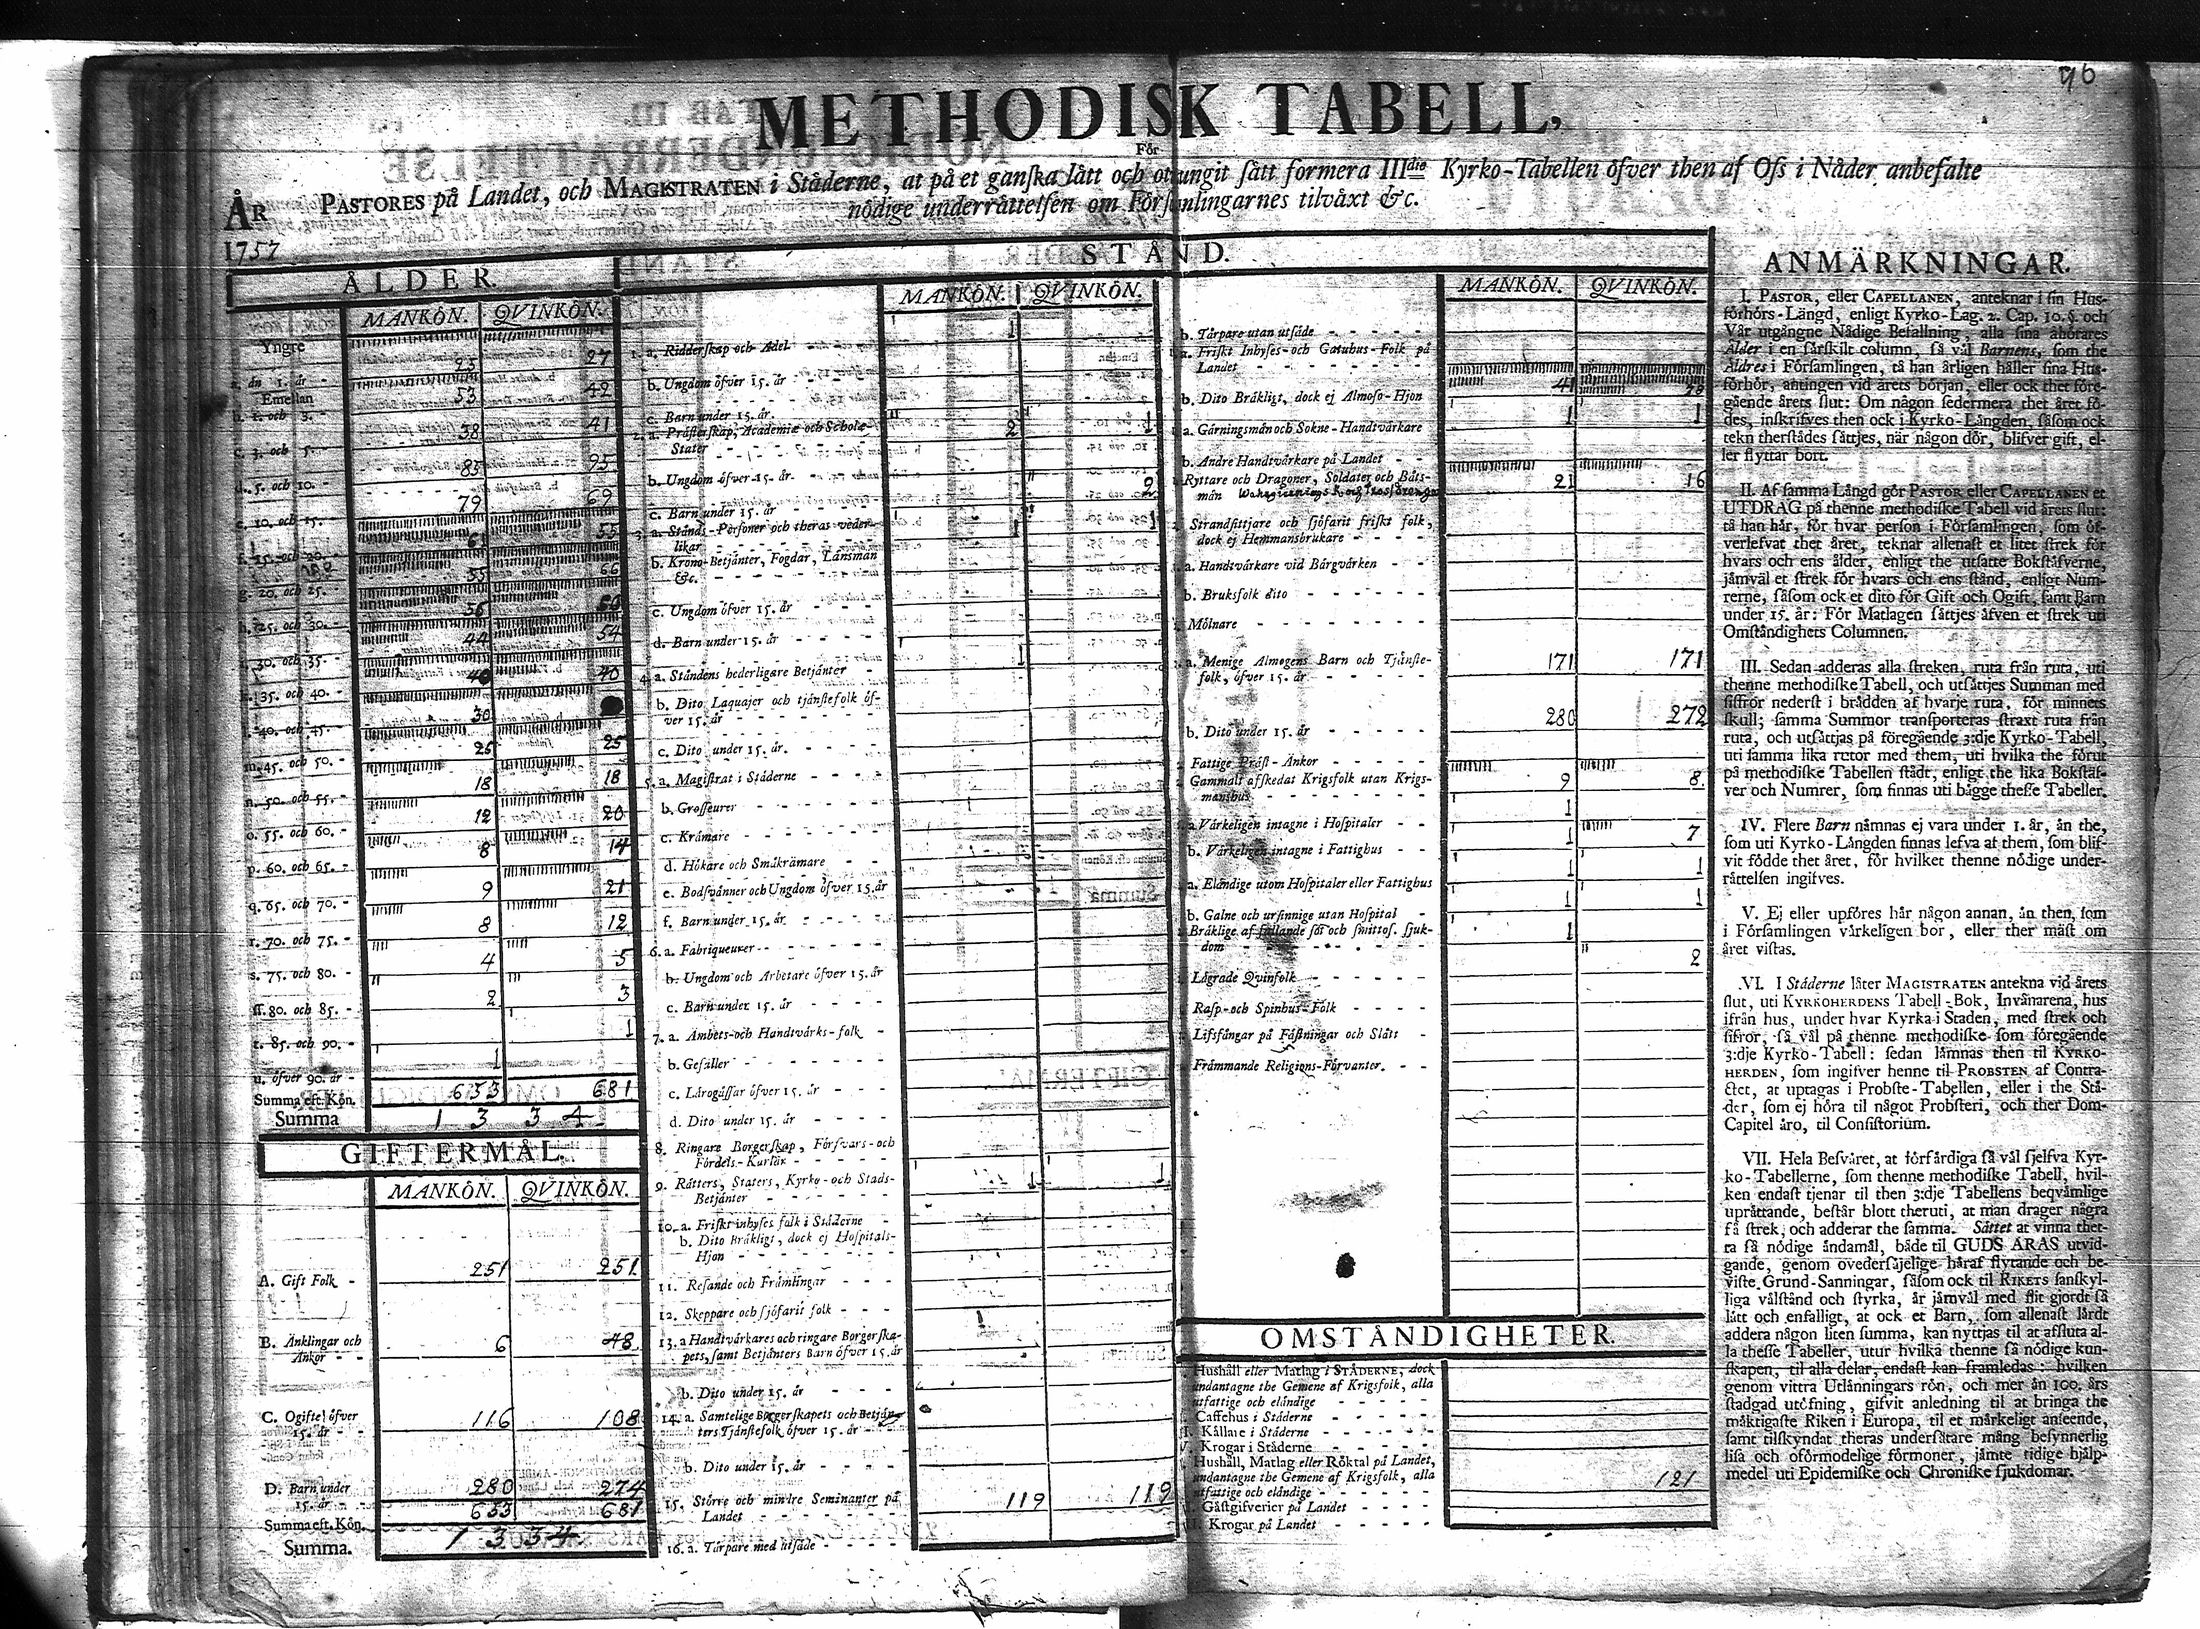 96
METHODISK TABELL,
För
PASTORES på Landet, och MAGISTRATEN i Städerne, at på et ganska lätt och otvungit sätt formera IIIdie Kyrko-Tabellen öfver then af Oss i Nåder anbefalte
nödige underrättelsen om Församlingarnes tilväxt &c.
ÅR
1757
ÅLDER.
MANKÖN. QVINKÖN.
Yngre
a. än 1. år - 25 27
Emellan
b. 1. och 3. - 53 42
c. 3. och 5. 38 41
d. 5. och 10. - 83 95
e. 10. och 15. - 79 69
f. 15. och 20. - 61 55
g. 20. och 25. - 55 66
h. 25. och 30. - 56
i. 30. och 35. - 44 54
k. 35. och 40. - 40 40
l. 40. och 45. - 30
m. 45. och 50. - 25 25
n. 50. och 55. - 18 18
o. 55. och 60. - 12 20
p. 60. och 65. - 8 14
q. 65. och 70. - 9 21
r. 70. och 75. - 8 12
s. 75. och 80. - 4 5
ſſ. 80. och 85. - 2 3
t. 85. och 90. - 1
u. öfver 90. år - 1
Summa eft. Kön. 653 681
Summa 1334
GIFTERMÅL.
MANKÖN. QVINKÖN.
A. Gift Folk - 251 251
B. Änklingar och
Änkor - - 6 48
C. Ogifte öfver
15. år - - 116 108
D. Barn under
15. år - - 280 274
Summa eft. Kön. 653 681
Summa. 1334
STÅND.
MANKÖN. QVINKÖN.
1. a. Ridderskap och Adel 1
b. Ungdom öfver 15. år
c. Barn under 15. år.
2. a. Prästerskap, Academiæ och Scholæ-
Stater - 2 1
b. Ungdom öfver 15. år
c. Barn under 15. år 2
3. a. Stånds-Personer och theras vederlikar 1 1
b. Krono-Betjänter, Fogdar, Länsmän
&c.
c. Ungdom öfver 15. år
d. Barn under 15. år
4. a. Ståndens hederligare Betjänter 1
b. Dito Laquajer och tjänstefolk öf-
ver 15. år
c. Dito under 15. år.
5. a. Magistrat i Städerne
b. Grosseurer
c. Krämare
d. Hökare och Småkrämare
e. Bodsvänner och Ungdom öfver 15. år
f. Barn under 15. år
6. a. Fabriqueurer
b. Ungdom och Arbetare öfver 15. år
c. Barn under 15. år
7. a. Ämbets- och Handtvärks-folk
b. Gesäller
c. Lärogåssar öfver 15. år
d. Dito under 15. år
8. Ringare Borgerskap, Försvars- och
Fördels-Karlar
9. Rätters, Staters, Kyrko- och Stads-
Betjänter 1 1
10. a. Friskt inhyses folk i Städerne
b. Dito Bräkligt, dock ej Hospitals-
Hjon
11. Resande och Främlingar
12. Skeppare och sjöfarit folk
13. a Handtvärkares och ringare Borgerska-
pets, samt Betjänters Barn öfver 15. år
b. Dito under 15. år
14. a. Samtelige Borgerskapets och Betjän-
ters Tjänstefolk öfver 15. år
b. Dito under 15. år
15. Större och mindre Hemmansbrukare på
Landet 119 119
16. a. Tårpare med utsäde
MANKÖN. QVINKÖN.
b. Tårpare utan utsäde
a. Friskt Inhyses- och Gatuhus-Folk på
Landet
b. Dito Bräkligt, dock ej Almoso-Hjon 41
a. Gärningsmän och Sokne-Handtvärkare 1 1
b. Andre Handtvärkare på Landet
Ryttare och Dragoner, Soldater och Båts-
män 21 16
Strandsittjare och sjöfarit friskt folk,
dock ej Hemmansbrukare
a. Handtvärkare vid Bärgvärken
b. Bruksfolk dito
Mölnare
a. Menige Almogens Barn och Tjänste-
folk, öfver 15. år 171 171
b. Dito under 15. år 280 272
Fattige Präst-Änkor
Gammalt afskedat Krigsfolk utan Krigs-
manshus 9 8
a. Värkeligen intagne i Hospitaler 1
b. Värkeligen intagne i Fattighus 1 7
a. Eländige utom Hospitaler eller Fattighus 1 1
b. Galne och ursinnige utan Hospital 1 1
Bräklige af fallande sot och smittos. sjuk-
dom 1 2
Lägrade Qvinfolk
Rasp- och Spinhus-Folk
Lifsfångar på Fästningar och Slått
Främmande Religions-Förvanter.
OMSTÄNDIGHETER.
Hushåll eller Matlag i STÄDERNE, dock
undantagne the Gemene af Krigsfolk, alla
utfattige och eländige
Caffehus i Städerne
Källare i Städerne
Krogar i Städerne
Hushåll, Matlag eller Röktal på Landet,
undantagne the Gemene af Krigsfolk, alla
utfattige och eländige 121
Gästgifverier på Landet
Krogar på Landet
ANMÄRKNINGAR.
I. PASTOR, eller CAPELLANEN, anteknar i sin Hus-
förhörs-Längd, enligt Kyrko-Lag. 2. Cap. 10. §. och
Vår utgångne Nådige Befallning, alla sina åhörares
Ålder i en särskilt column, så väl Barnens, som the
Äldres i Församlingen, tå han årligen håller sina Hus-
förhör, antingen vid årets början, eller ock thet före-
gående årets slut: Om någon sedermera thet året fö-
des, inskrifves then ock i Kyrko-Längden, såsom ock
tekn therstädes sättjes, när någon dör, blifver gift, el-
ler flyttar bort.
II. Af samma Längd gör PASTOR eller CAPELLANEN et
UTDRAG på thenne methodiske Tabell vid årets slut:
tå han här, för hvar person i Församlingen, som öf-
verlefvat thet året, teknar allenast et litet strek för
hvars och ens ålder, enligt the utsatte Bokstäfverne,
jämväl et strek för hvars och ens stånd, enligt Num-
rerne, såsom ock et dito för Gift och Ogift, samt Barn
under 15. år: För Matlagen sättjes äfven et strek uti
Omständighets Columnen.
III. Sedan adderas alla streken, ruta från ruta, uti
thenne methodiske Tabell, och utsättjes Summan med
siffror nederst i brädden af hvarje ruta, för minnets
skull; samma Summor transporteras straxt ruta från
ruta, och utsättjas på föregående 3:dje Kyrko-Tabell,
uti samma lika rutor med them, uti hvilka the förut
på methodiske Tabellen städt, enligt the lika Bokstäf-
ver och Numrer, som finnas uti bägge thesse Tabeller.
IV. Flere Barn nämnas ej vara under 1. år, än the,
som uti Kyrko-Längden finnas lefva af them, som blif-
vit födde thet året, för hvilket thenne nödige under-
rättelsen ingifves.
V. Ej eller upföres här någon annan, än then, som
i Församlingen värkeligen bor, eller ther mäst om
året vistas.
VI. I Städerne låter MAGISTRATEN antekna vid årets
slut, uti KYRKOHERDENS Tabell-Bok, Invånarena, hus
ifrån hus, under hvar Kyrka i Staden, med strek och
siffror, så väl på thenne methodiske som föregående
3:dje Kyrko-Tabell: sedan lämnas then til KYRKO-
HERDEN, som ingifver henne til PROBSTEN af Contra-
ctet, at uptagas i Probste-Tabellen, eller i the Stä-
der, som ej höra til något Probsteri, och ther Dom-
Capitel äro, til Consistorium.
VII. Hela Besväret, at förfärdiga så väl sjelfva Kyr-
ko-Tabellerne, som thenne methodiske Tabell, hvil-
ken endast tjenar til then 3:dje Tabellens beqvämlige
uprättande, består blott theruti, at man drager några
få strek, och adderar the samma. Sättet at vinna thet-
ta så nödige ändamål, både til GUDS ÄRAS utvid-
gande, genom ovedersäjelige häraf flytande och be-
viste Grund-Sanningar, såsom ock til RIKETS sanskyl-
liga välstånd och styrka, är jämväl med flit gjordt så
lätt och enfalligt, at ock et Barn, som allenast lärdt
addera någon liten summa, kan nyttjas til at afsluta al-
la thesse Tabeller, utur hvilka thenne så nödige kun-
skapen, til alla delar, endast kan framledas: hvilken
genom vittra Utlänningars rön, och mer än 100. års
stadgad utöfning, gifvit anledning til at bringa the
mäktigaste Riken i Europa, til et märkeligt anseende,
samt tilskyndat theras undersåtare mång besynnerlig
lisa och oförmodelige förmoner, jämte tidige hjälp-
medel uti Epidemiske och Chroniske sjukdomar.